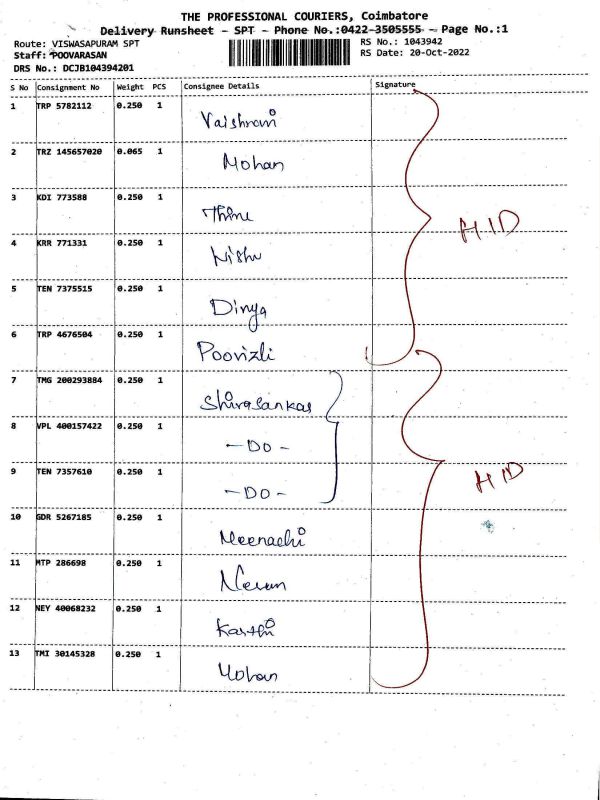 THE PROFESSIONAL COURIERS, Coimbatore
Delivery Runsheet - SPT - Phone No.:0422-3505555 - Page No.:1
Route: VISWASAPURAM SPT
RS No.: 1043942
Staff: POOVARASAN
RS Date: 20-Oct-2022
DRS No.: DCJB104394201
S No Consignment No Weight PCS Consignee Details Signature
1 TRP 5782112 0.250 1 Vaishnavi
2 TRZ 145657020 0.065 1 Mohan
3 KDI 773588 0.250 1
4 KRR 771331 0.250 1 Nishu
5 TEN 7375515 0.250 1 Divya
6 TRP 4676504 0.250 1 Poovizli
7 TMG 200293884 0.250 1 Shivasankar
8 VPL 400157422 0.250 1 -DO-
9 TEN 7357610 0.250 1 -DO-
10 GDR 5267185 0.250 1 Meenachi
11 MTP 286698 0.250 1
12 NEY 40068232 0.250 1 Karthi
13 TMI 30145328 0.250 1 Mohan
HID
HID